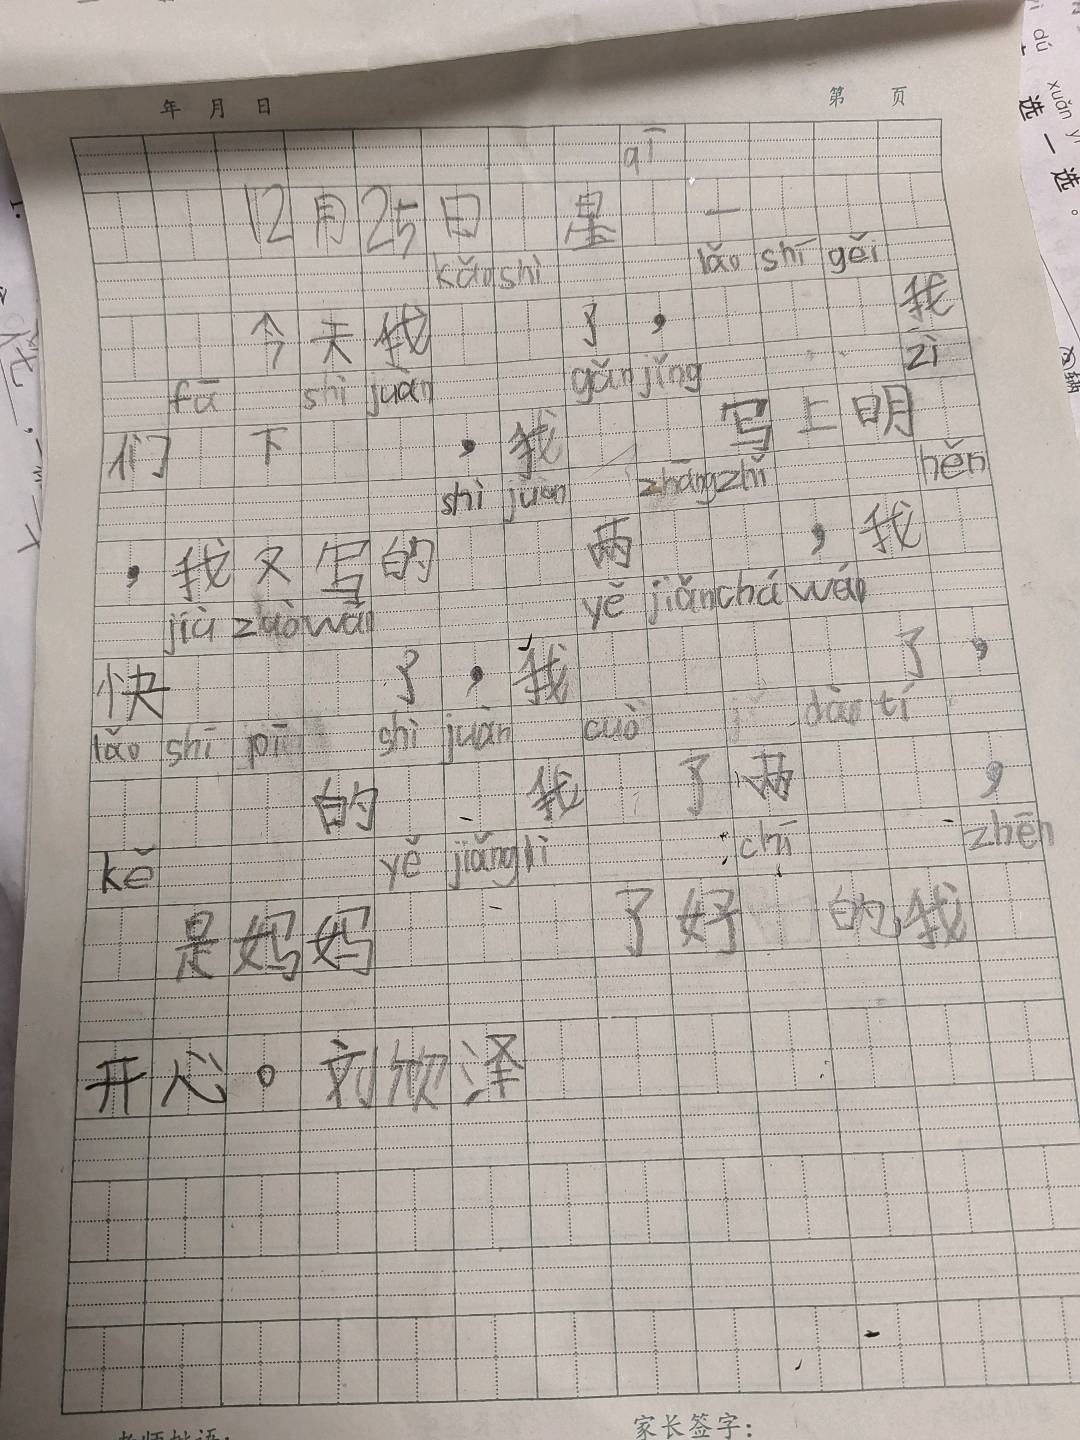 年 月 日 第 页
qī
12月25日 星 一
kǎo shì lǎo shī gěi
今天我 了，我
fā shì juàn gǎn jǐng zì
们 下 ，我 写上明
shì juàn zhāng zhǐ hěn
，我又写的 两 ，我
jiù zuò wán yě jiǎn chá wán
快 了，我 了，
lǎo shī pī shì juàn cuò dào tí
的 我 了两 ，
kě yě jiǎng lì chī zhēn
是妈妈 了好 的我
开心。刘欣泽
家长签字：
xuǎn
选一选。